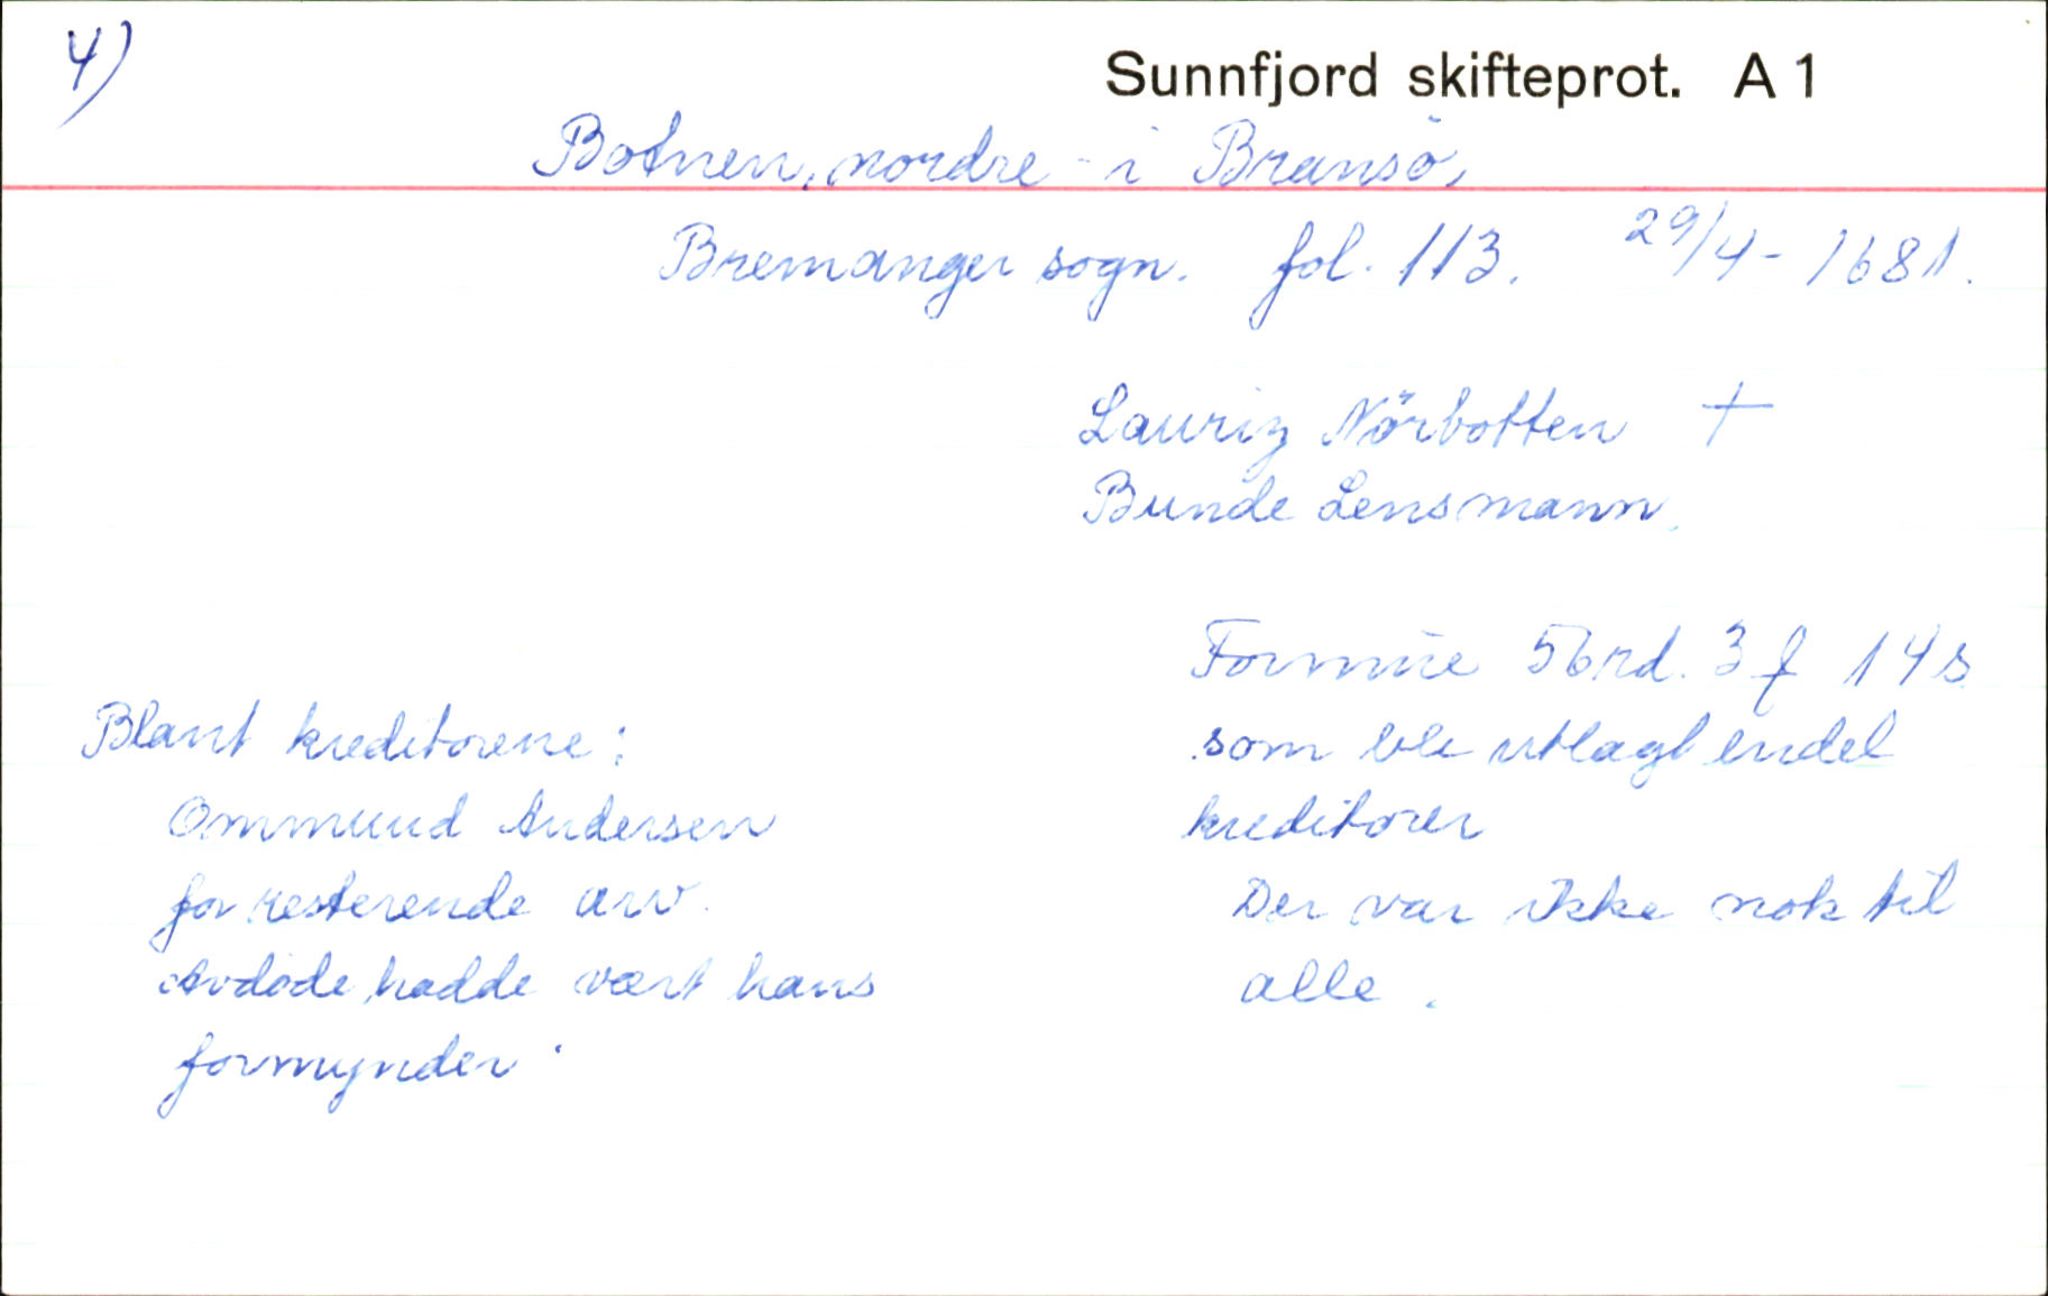 4)
Sunnfjord skifteprot. A 1
Botnen, nordre - i Bransö,
Bremanger sogn. fol. 113. 29/4 - 1681.
Lauriz Nörbotten †
Bunde Lensmann.
Formue 56 rd. 3 f 14 s
som ble utlagt endel
kreditorer
Der var ikke nok til
alle.
Blant kreditorene:
Ommund Andersen
for resterende arv.
Avdøde hadde vært hans
formynder.